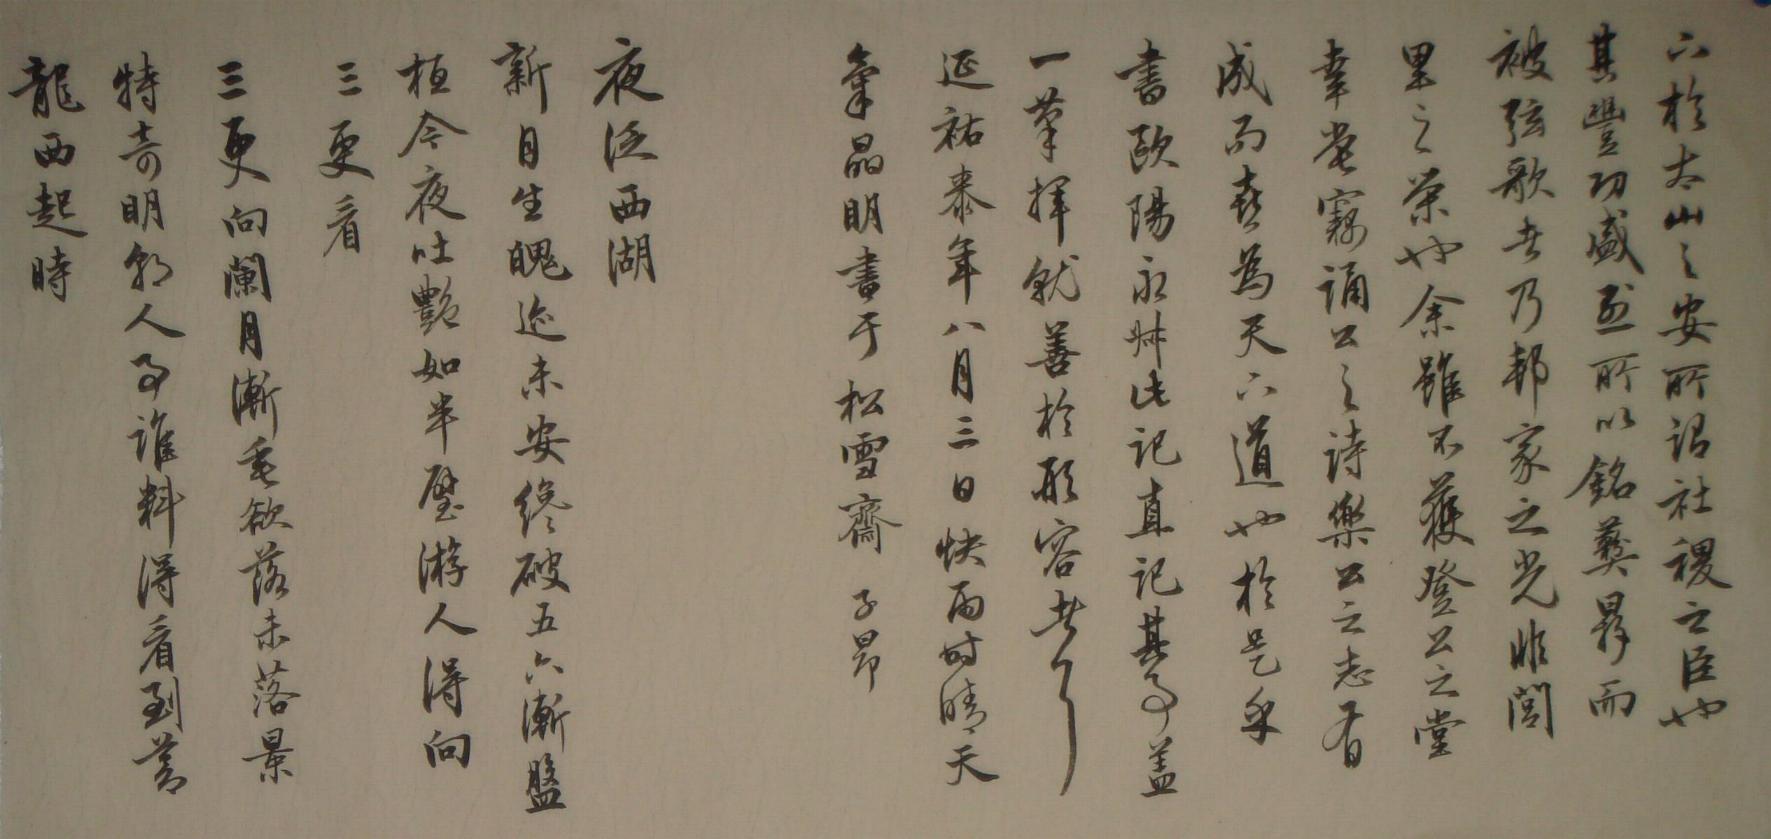 下於太山之安所謂社稷之臣也
其豐功盛烈所以銘彝鼎而
被弦歌者乃邦家之光非閭
里之榮也余雖不獲登公之堂
幸嘗竊誦公之詩樂公之志有
成而喜為天下道也於是乎
書歐陽永叔此記直記其事蓋
一筆揮就善於形容者
延祐泰年八月三日快雨時晴天
氣晶明書于松雪齋 子昂
夜泛西湖
新月生魄迹未安纔破五六漸盤
桓今夜吐艷如半璧游人得向
三更看
三更向闌月漸垂欲落未落景
特奇明朝人事誰料得看到蒼
龍西起時